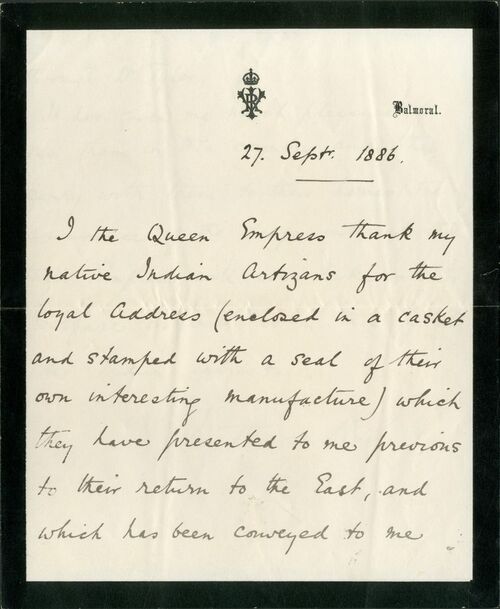 VRI
Balmoral.
27. Septr. 1886.
I the Queen Empress thank my
native Indian Artizans for the
loyal Address (enclosed in a casket
and stamped with a seal of their
own interesting manufacture) which
they have presented to me previous
to their return to the East, and
which has been conveyed to me